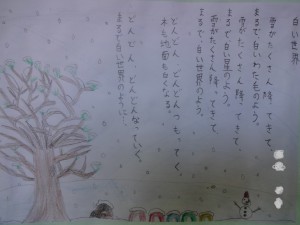 白い世界
雪がたくさん降ってきて
まるで白いわた毛のよう。
雪がたくさん降ってきて
まるで白い星のよう。
雪がたくさん降ってきて
まるで白い世界のよう。
どんどんどんどんつもってく
木も地面も白くなる。
どんどんどんどんなっていく。
まるで白い世界のように。